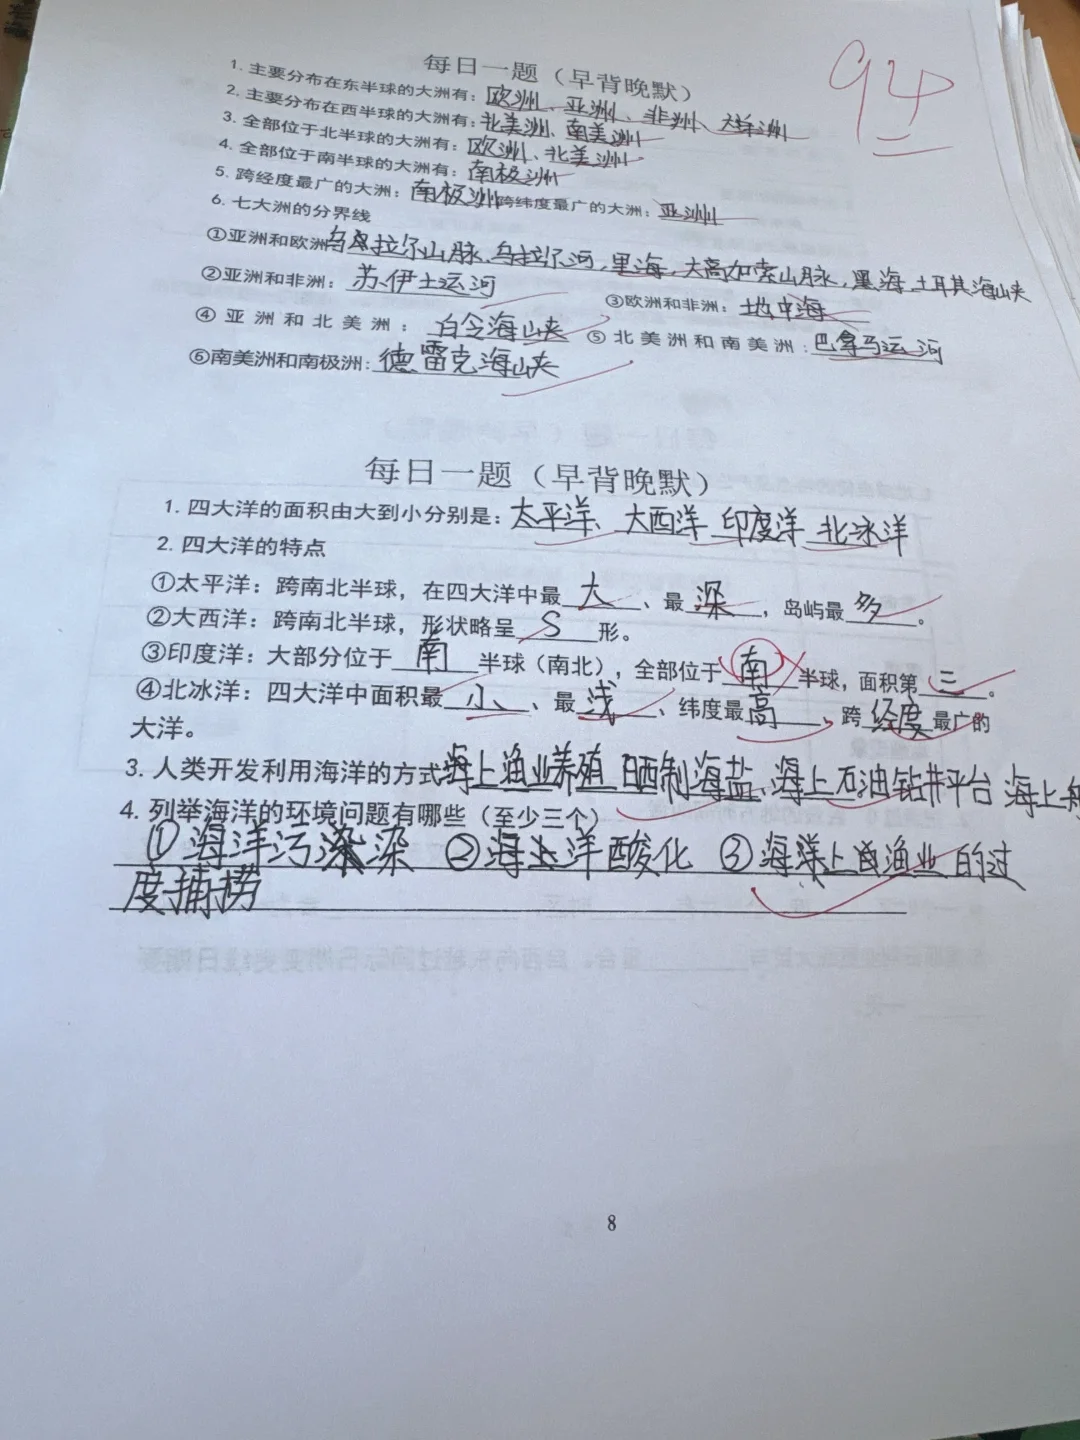 94
每日一题（早背晚默）
1. 主要分布在东半球的大洲有：欧洲、亚洲、非洲、大洋洲
2. 主要分布在西半球的大洲有：北美洲、南美洲
3. 全部位于北半球的大洲有：欧洲、北美洲
4. 全部位于南半球的大洲有：南极洲
5. 跨经度最广的大洲：南极洲 跨纬度最广的大洲：亚洲
6. 七大洲的分界线
①亚洲和欧洲 乌拉尔山脉、乌拉尔河，里海，大高加索山脉，黑海 土耳其海峡
②亚洲和非洲：苏伊士运河 ③欧洲和非洲：地中海
④ 亚洲和北美洲：白令海峡 ⑤ 北美洲和南美洲：巴拿马运河
⑥南美洲和南极洲：德雷克海峡
每日一题（早背晚默）
1. 四大洋的面积由大到小分别是：太平洋、大西洋 印度洋 北冰洋
2. 四大洋的特点
①太平洋：跨南北半球，在四大洋中最大、最深，岛屿最多。
②大西洋：跨南北半球，形状略呈S形。
③印度洋：大部分位于南半球（南北），全部位于南半球，面积第三。
④北冰洋：四大洋中面积最小、最浅、纬度最高、跨经度最广的
大洋。
3. 人类开发利用海洋的方式 海上渔业养殖 晒制海盐、海上石油钻井平台 海上
4. 列举海洋的环境问题有哪些（至少三个）
①海洋污染 ②海洋酸化 ③海洋上渔业的过
度捕捞
8